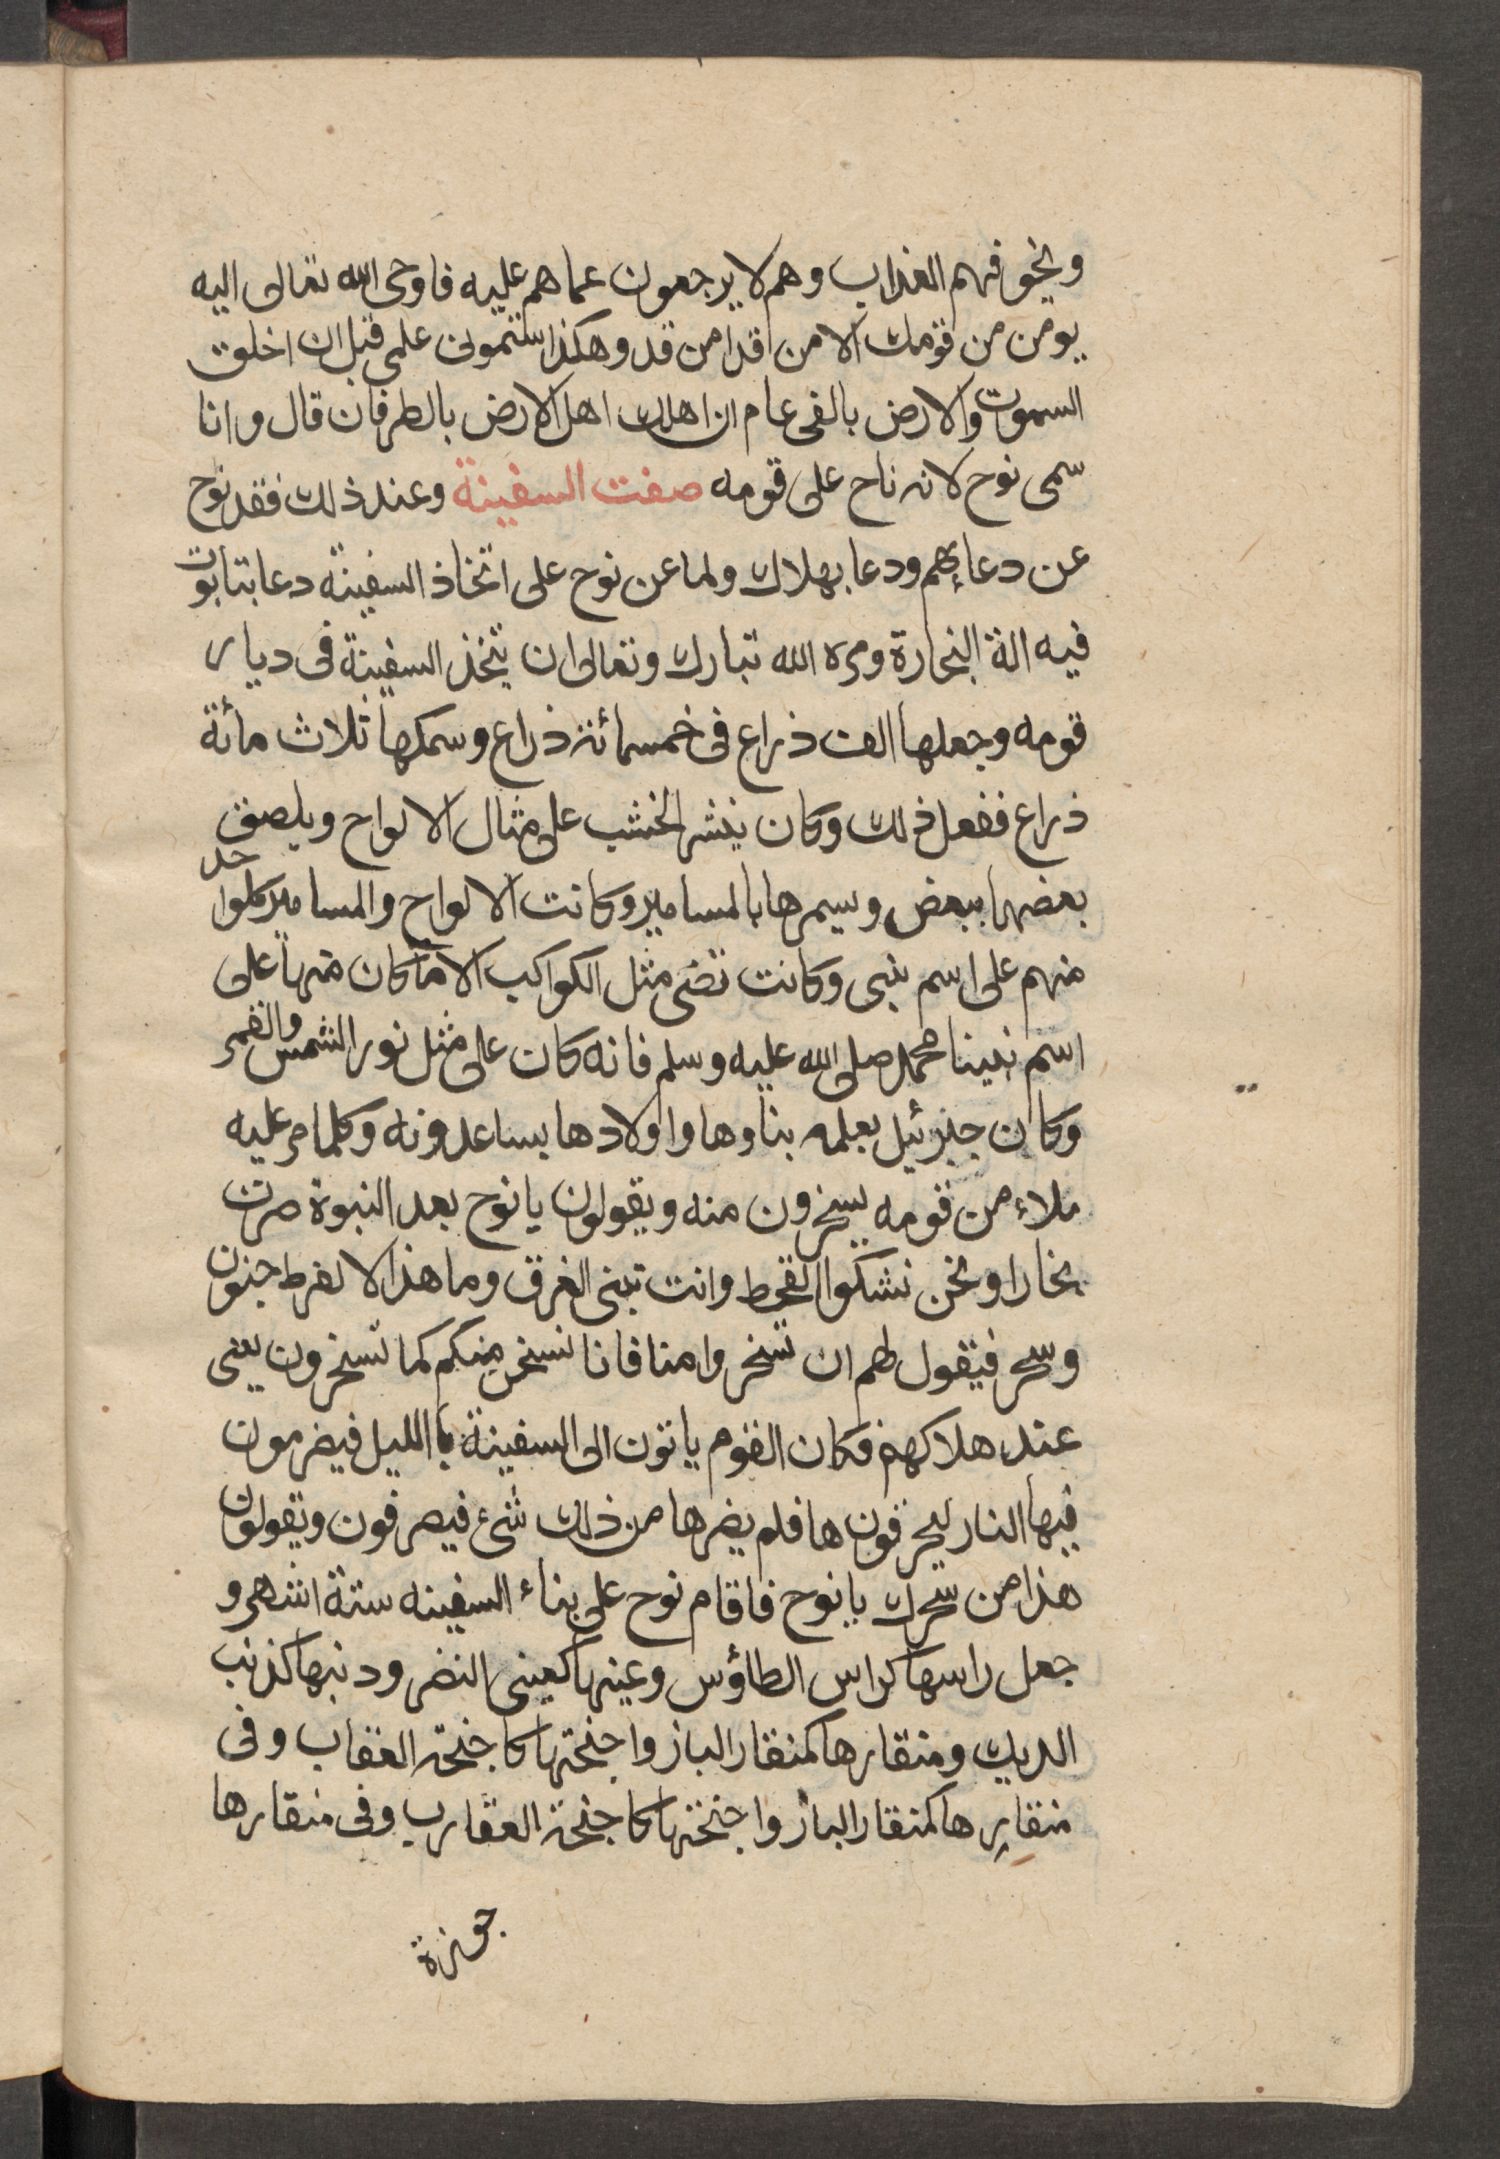 ويخوفهم العذاب وهم لا يرجعون عما هم عليه فاوحى الله تعالى اليه
يومن من قومك الا من اقدامن قد وهكذا ستمون علمى قبل ان اخلق
السموت والارض بالفى عام ان اهلك اهل الارض بالطرفان قال وانا
سمى نوح لانه ناح على قومه صفت السفينة وعند ذلك فقد نوح
عن دعابهم ودعا بهلاك ولما عن نوح على اتخاذ السفينة دعا بتابوت
فيه الة النجارة ومره الله تبارك وتعالى ان يتخذ السفينة فى ديار
قومه وجعلها الف ذراع فى خمسمائة ذراع وسمكها ثلاث مائة
ذراع ففعل ذلك وكان ينشر الخشب على مثال الالواح ويلصق
بعضها ببعض وسيمرها بالمسامير وكانت الالواح والمسامير كلواحد
منهم على اسم نبى وكانت تضى مثل الكواكب الا ما كان منها على
اسم نبينا محمد صلى الله عليه وسلم فانه كان على مثل نور الشمس والقمر
وكان جبرئيل يعلمه بناوها واولادها يساعدونه وكلما مر عليه
ملاء من قومه يسخرون منه ويقولون يا نوح بعد النبوة صرت
نجارا ونحن نشكوا القحط وانت تبنى الغرق وما هذا الا لفرط جنون
وسحر فيقول لهم ان تسخروا منا فانا نسخر منكم كما تسخرون يعنى
عند هلاكهم فكان القوم ياتون الى السفينة باالليل فيضرمون
فيها النار ليحرقون ها فلم يضرها من ذلك شئ فيصرفون ويقولون
هذا من سحرك يا نوح فاقام نوح على بناء السفينه ستة اشهر و
جعل راسها كراس الطاؤس وعينها كعينى النضر ودنبها كذنب
الديك ومنقارها كمنقار الباز واجنحتها كاجنحة العقاب وفى
منقايرها كمنقار الباز واجنحتها كاجنحة العقارب وفى منقارها
جوهرة